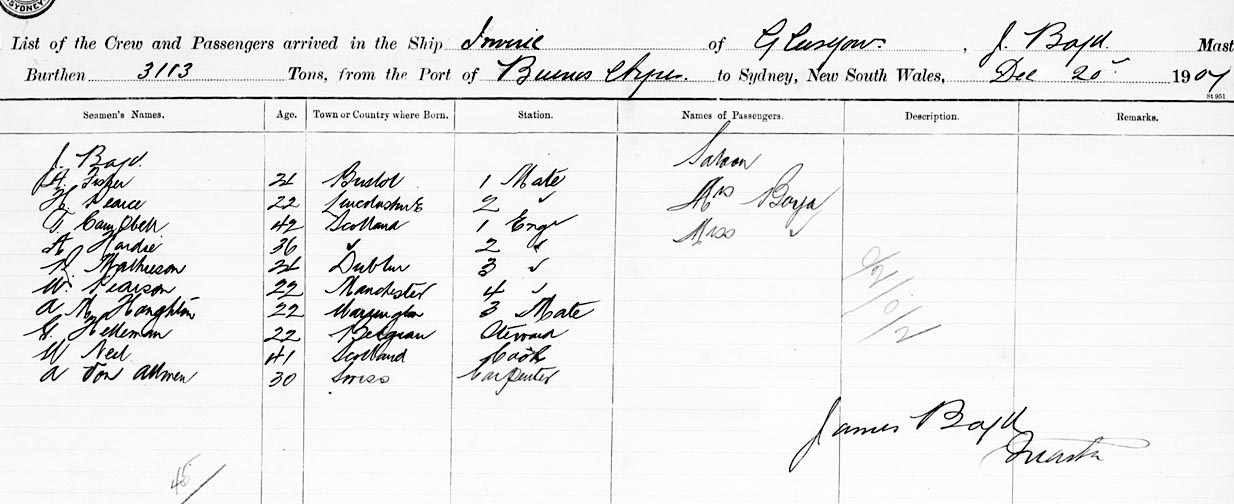 SYDNEY.
List of the Crew and Passengers arrived in the Ship Inveric of Glasgow. , J. Boyd. Mast
Burthen 3113 Tons, from the Port of Buenos Ayres. to Sydney, New South Wales, Dec 20 1907
St 951
Seamen's Names. Age. Town or Country where Born. Station. Names of Passengers. Description. Remarks.
J. Boyd. Saloon
Fisher Bristol 1 Mate
H. Pearce 22 Lincolnshire 2 " Mrs Boyd
T. Campbell 42 Scotland 1 Engr Miss "
A Hardie 36 " 2 "
Mathieson Dublin 3 "
W. Pearson 22 Manchester 4 "
A M Haughton 22 Warrington 3 Mate
G. Helleman 22 Belgian Steward
W Neil 41 Scotland Cook
A Von Allmen 30 Swiss Carpenter
James Boyd
Master
45/